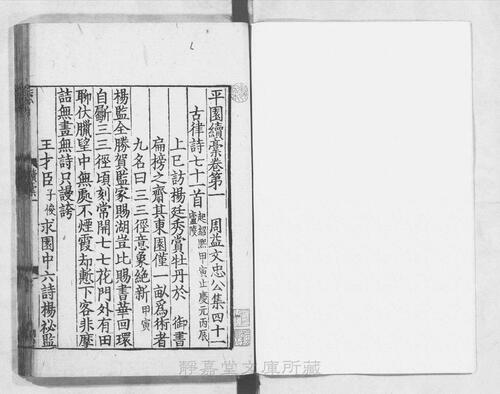 平園續稾卷第一　周益文忠公集四十一
古律詩七十一首 起紹熙甲寅止慶元丙辰 盧陵
上巳訪楊廷秀賞牡丹於　御書
扁榜之齋其東園僅一畝爲術者
九名曰三三徑意象絕新 甲寅
楊監全勝賀監家賜湖豈比賜書華回環
自斸三三徑頃刻常開七七花門外有田
聊伏臘望中無處不煙霞却慙下客非摩
詰無畫無詩只謾誇
王才臣 子俊 求園中六詩楊祕監
靜嘉堂文庫所藏